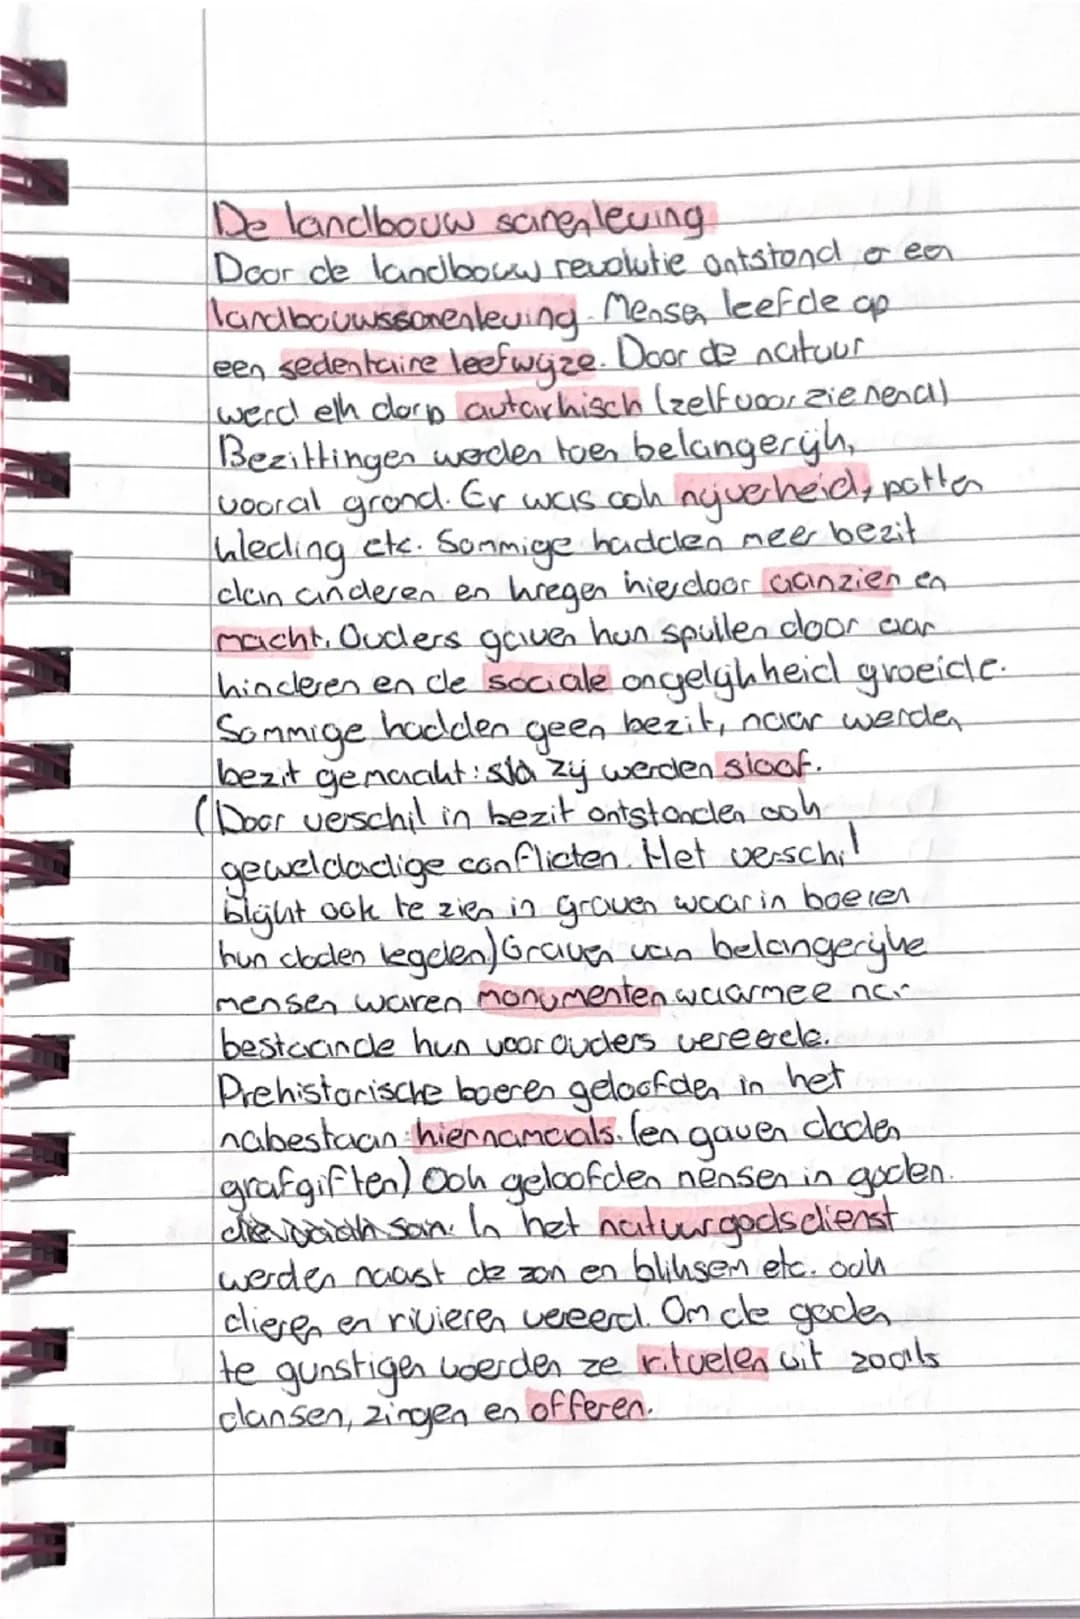 De landbouw samenleving
Door de landbouw revolutie ontstond er een
landbouwssamenleving. Mensen leefde op
een sedentaire leefwijze. Door de natuur
werd elk dorp autarkisch (zelfvoorzienend)
Bezittingen werden toen belangerijk,
vooral grond. Er was ook nijverheid, potten
kleding etc. Sommige hadden meer bezit
dan anderen en kregen hierdoor aanzien en
macht. Ouders gaven hun spullen door aan
kinderen en de sociale ongelijkheid groeide.
Sommige hadden geen bezit, maar werden
bezit gemaakt: zij werden slaaf.
(Door verschil in bezit ontstonden ook
geweldadige conflicten. Het verschil
blijkt ook te zien in graven waarin boeren
hun doden legden) Graven van belangerijke
mensen waren monumenten waarmee na-
bestaande hun voorouders vereerde.
Prehistorische boeren geloofden in het
nabestaan: hiernamaals. (en gaven doden
grafgiften) Ook geloofden mensen in goden.
In het natuurgodsdienst
werden naast de zon en bliksem etc. ook
dieren en rivieren vereerd. Om de goden
te gunstigen voerden ze rituelen uit zoals
dansen, zingen en offeren.